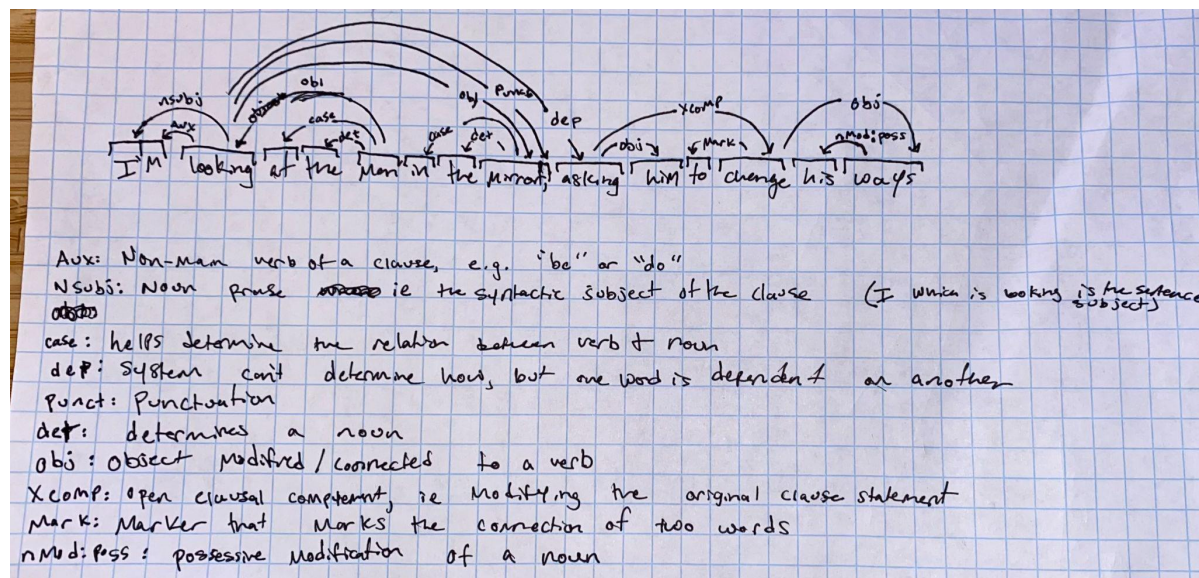 obl
nsubj aux case det case det obj punct dep xcomp obj
obj mark nmod:poss
I'm looking at the man in the mirror, asking him to change his ways
Aux: Non-main verb of a clause, e.g. "be" or "do"
Nsubj: Noun prase ie the syntactic subject of the clause (I which is looking is the setence subject)
case: helps determine the relation between verb & noun
dep: System can't determine how, but one word is dependent on another
Punct: Punctuation
det: determines a noun
obj: object modified/connected to a verb
Xcomp: open clausal complement, ie Modifying the original clause statement
Mark: Marker that Marks the connection of two words
nMod:poss: possessive modification of a noun